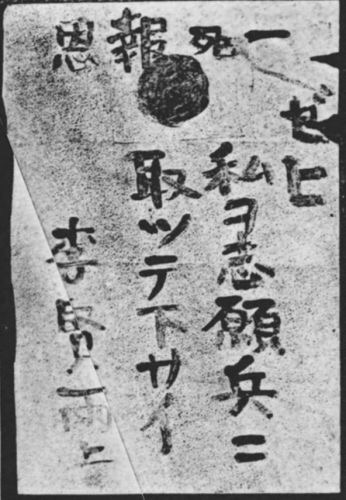 一死報恩
ゼヒ
私ヲ志願兵ニ
取ッテ下サイ
李賢